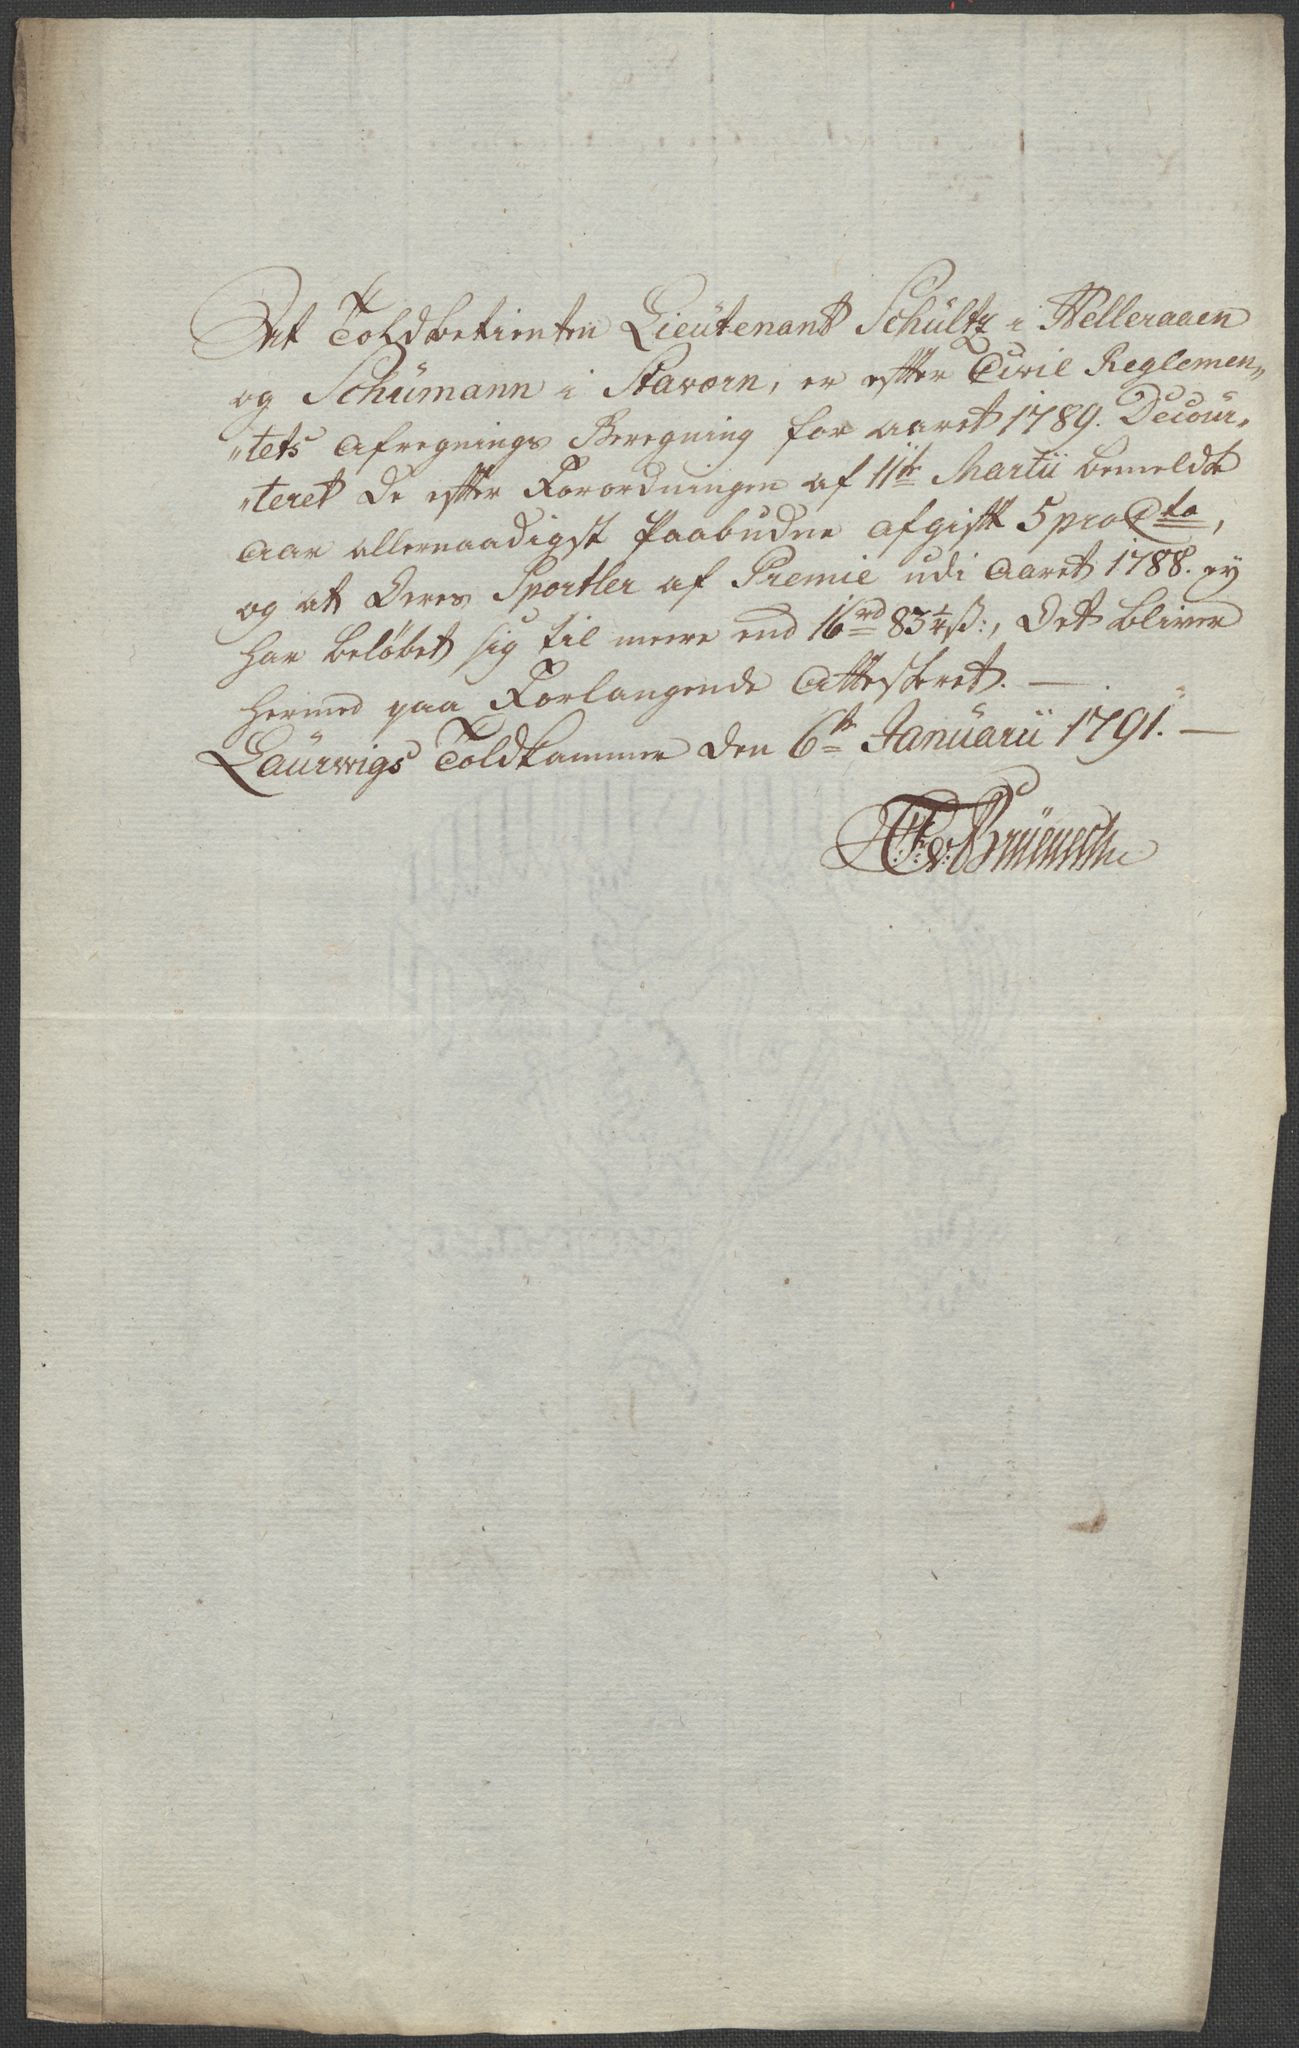 At Toldbetienten Lieutenant Schultz i Helleraaen
og Schumann i Staværn, er efter Civil Reglemen„
„tets Afregnings Beregning for aaret 1789. Decour„
„teret De efter Forordningen af 11te Martii bemeldte
Aar allernaadigst Paabudne Afgift 5 pro Cto,
og at Deres Sportler af Premie udi Aaret 1788. ey
har beløbet sig til meere end 16rd 83¼ß:, Det bliver
hermed paa Forlangende Attesteret. —
Laurwigs Toldkammer den 6te Januarii 1791. —